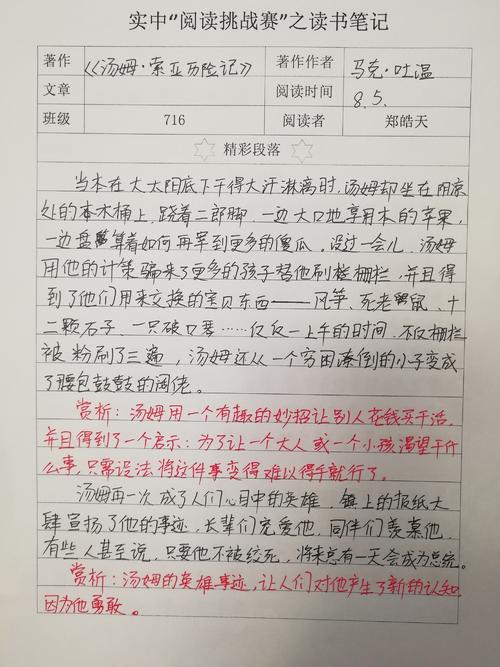 实中“阅读挑战赛”之读书笔记
著作 《汤姆·索亚历险记》 著作作者 马克·吐温
文章 阅读时间 8.5.
班级 716 阅读者 郑皓天
精彩段落
当本在大太阳底下干得大汗淋漓时,汤姆却坐在阴凉
处的木桶上,跷着二郎脚,一边大口地享用本的苹果,
一边盘算着如何再宰到更多的傻瓜。没过一会儿,汤姆
用他的计策骗来了更多的孩子替他刷栅栏,并且得
到了他们用来交换的宝贝东西——风筝、死老鼠、十
二颗石子、一只破口琴……仅仅一上午的时间,不仅栅栏
被粉刷了三遍,汤姆还从一个穷困潦倒的小子变成
了腰包鼓鼓的阔佬。
赏析:汤姆用一个有趣的妙招让别人花钱买干活,
并且得到了一个启示:为了让一个大人或一个小孩渴望干什
么事,只需设法将这件事变得难以得手就行了。
汤姆再一次成了人们心目中的英雄,镇上的报纸大
肆宣扬了他的事迹,长辈们宠爱他,同伴们羡慕他,
有些人甚至说,只要他不被绞死,将来总有一天会成为总统。
赏析:汤姆的英雄事迹,让人们对他产生了新的认知
因为他勇敢。